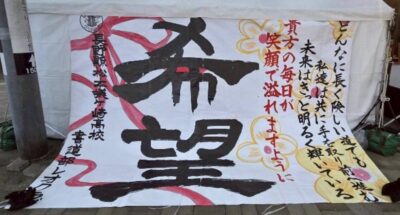 どんなに長く険しい道でも
私達は共に手を取り前
未来はきっと明るく輝いている
貴方の毎日が
笑顔で溢れますように
希望
長野県松本蟻ヶ崎高校
書道部